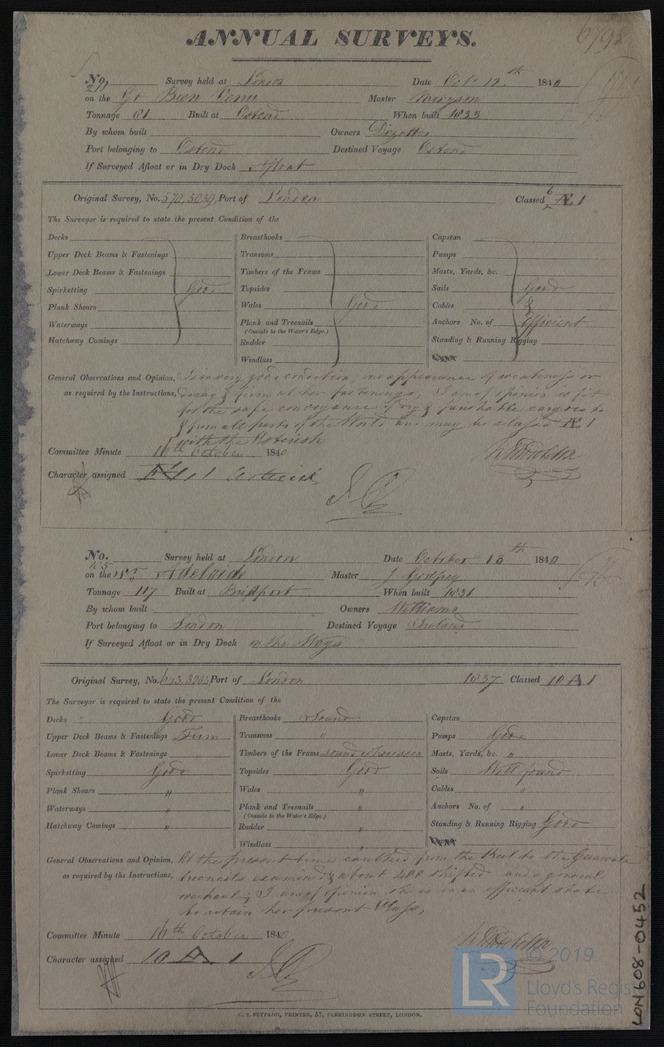 ANNUAL SURVEYS.
No. Survey held at London Date Oct 12th 1840
on the Bien Venu Master
Tonnage 61 Built at Ostend When built 1833
By whom built Owners
Port belonging to Ostend Destined Voyage Ostend
If Surveyed Afloat or in Dry Dock Afloat
Original Survey, No. Port of London Classed Æ 1
The Surveyor is required to state the present Condition of the
Decks Breasthooks Capstan
Upper Deck Beams & Fastenings Transoms Pumps
Lower Deck Beams & Fastenings Timbers of the Frame Masts, Yards, &c.
Spirketting Good Topsides Sails Good
Plank Shears Wales Good Cables &
Waterways Plank and Treenails Anchors No. of Efficient
(Outside to the Water's Edge.)
Hatchway Comings Rudder Standing & Running Rigging
Windlass
General Observations and Opinion, Is in very good condition, no appearance of weakness or
as required by the Instructions, decay & firm at her fastenings, I am of opinion is fit
for the safe conveyance of dry & perishable cargoes to
& from all parts of the World and may be classed Æ 1
with the Asterisk
Committee Minute 16th October 1840
Character assigned
No. Survey held at London Date October 13th 1840
on the Adelaide Master J Godfrey
Tonnage 117 Built at Bridport When built 1831
By whom built Owners Matthews
Port belonging to London Destined Voyage Ireland
If Surveyed Afloat or in Dry Dock on the Ways
Original Survey, No. Port of London 1837 Classed 10 A 1
The Surveyor is required to state the present Condition of the
Decks Good Breasthooks Sound Capstan
Upper Deck Beams & Fastenings Firm Transoms " Pumps Good
Lower Deck Beams & Fastenings Timbers of the Frame Masts, Yards, &c. "
Spirketting Good Topsides Good Sails Well found
Plank Shears " Wales " Cables "
Waterways " Plank and Treenails " Anchors No. of "
(Outside to the Water's Edge.)
Hatchway Comings " Rudder " Standing & Running Rigging Good
Windlass "
General Observations and Opinion, At the present time caulked from the Keel to the Gunwale
as required by the Instructions, treenails examined & about 400 shifted and a general
overhaul; I am of opinion she is in an efficient state
to retain her present Class.
Committee Minute 16th October 1840
Character assigned 10 A 1
LON608-0452
LR
© 2019
Lloyd's Register
Foundation